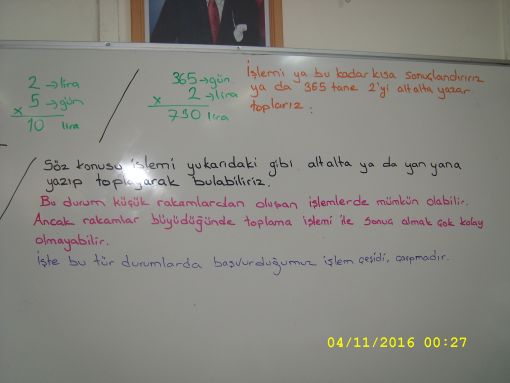 2 → lira
x 5 → gün
10 lira
365 → gün
x 2 → lira
730 lira
İşlemi ya bu kadar kısa sonuçlandırırız
ya da 365 tane 2'yi alt alta yazar
toplarız :
Söz konusu işlemi yukarıdaki gibi alt alta ya da yan yana
yazıp toplayarak bulabiliriz.
Bu durum küçük rakamlardan oluşan işlemlerde mümkün olabilir.
Ancak rakamlar büyüdüğünde toplama işlemi ile sonuç almak çok kolay
olmayabilir.
İşte bu tür durumlarda başvurduğumuz işlem çeşidi, çarpmadır.
04/11/2016 00:27